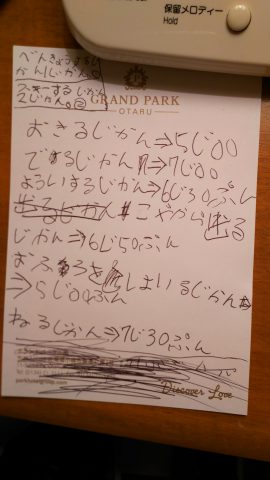 保留メロディー
Hold
べんきょうするじ
かん1じかん
スキーするじかん
2じかん
GRAND PARK
OTARU
おきるじかん⇒5じ00
でるじかん⇒7じ00
よういするかん⇒6じ30ぷん
こやから出る
じかん⇒6じ50ぷん
おふろを しよいるじかん
⇒5じ00ぷん
ねるじかん⇒7じ30ぷん
Discover Love